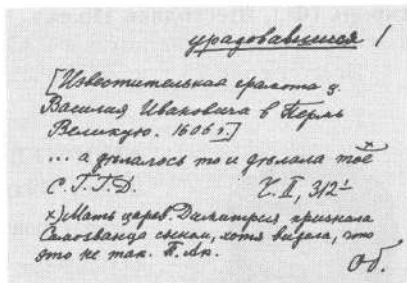 урадовавшися /
[Известительная грамота ц.
Василия Ивановича в Пермь
Великую. 1606 г.]
... а дѣялось то и дѣлала тоё x)
С.Г.Г.Д. Ч. II, 312
x) Мать царев. Димитрия признала
Самозванца сыном, хотя видела, что
это не так. П. Ак.
Об.